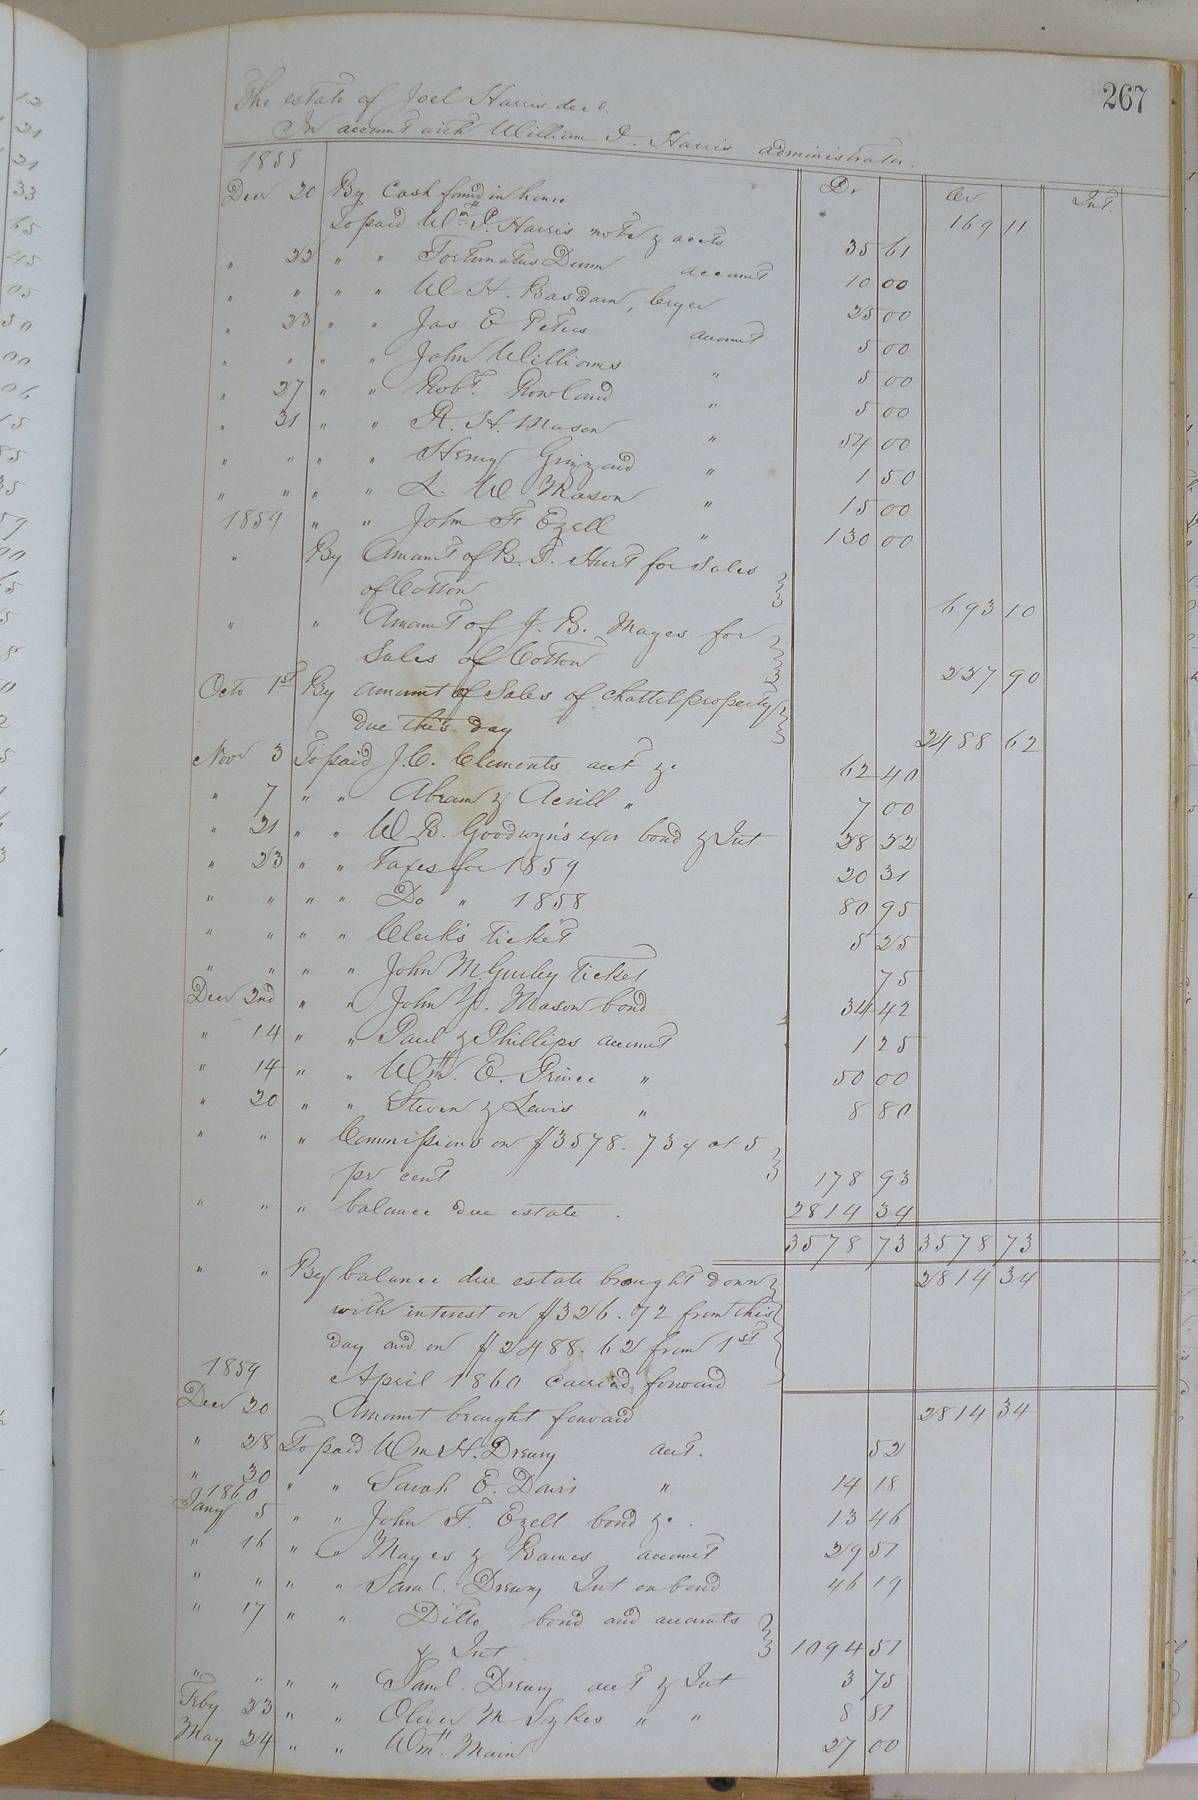 267
The estate of Joel Harris decd.
In account with William P. Harris administrator.
1858 Dr Cr Int.
Decr 20 By Cash found in house 169 11
To paid Wm P. Harris note & accts 35 61
" 22 " " Fortunatus Dunn account 10 00
" " " " W. H. Basdain, Cryer 25 00
" 23 " " Jas E Peters account 5 00
" " " " John Williams " 5 00
" 27 " " Robt. Rowland " 5 00
" 31 " " R. H. Mason " 54 00
" " " " Henry Grizzard " 1 50
" " " " L. W Mason " 15 00
1859 " " John F. Ezell " 130 00
" By Amount of B. P. Hurt for Sales
of Cotton 693 10
" " Amount of J. B. Mayes for
Sales of Cotton 227 90
Octo 1st By amount of Sales of chattel property
due this day 2488 62
Nov 3 To paid J. C. Clements acct &c 62 40
" 7 " " Abram & Acrill " 7 00
" 21 " " W. B. Goodwyn's exor bond & Int 28 22
" 23 " " Taxes for 1859 20 31
" " " " Do " 1858 80 95
" " " " Clerk's ticket 5 25
" " " " John M. Gurley Ticket 75
Decr 2nd " " John Y. Mason bond 34 42
" 14 " " Paul & Phillips account 1 25
" 14 " " Wm. E. Prince " 50 00
" 20 " " Steven & Lewis " 8 80
" " " Commissions on $3578.73 at 5
pr cent 178 93
" " " balance due estate. 2814 34
3578 73 3578 73
" " By balance due estate brought down 2814 34
with interest on $326.72 from this
day and on $2488.62 from 1st
April 1860 carried forward
1859
Decr 20 Amount brought forward 2814 34
" 28 To paid Wm H. Drewry acct. 52
" 30 " " Sarah E. Davis " 14 18
1860
Jany 5 " " John F. Ezell bond &c. 13 46
" 16 " " Mayes & Barnes account 29 51
" " " " Saml. Drewry Int on bond 46 19
" 17 " " Ditto bond and accounts
& Int. 1094 51
" " " " Saml. Drewry acct & Int 3 75
Feby 23 " " Oliver M Sykes " " 8 81
May 24 " " Wm. Main 27 00